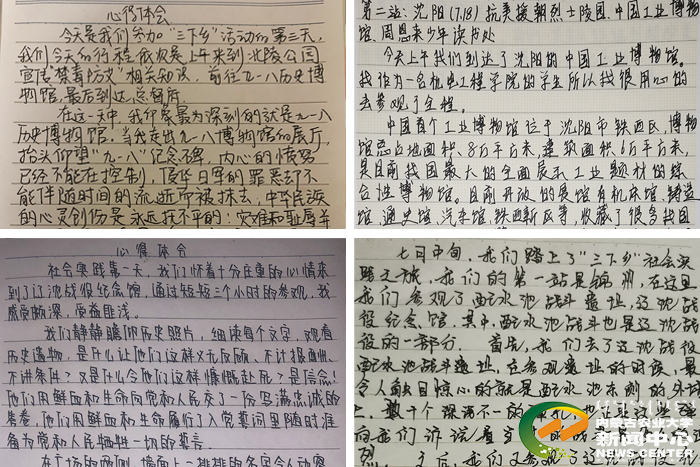 心得体会
今天是我们参加“三下乡”活动的第三天,
我们今天的行程依次是上午来到北陵公园
宣传“禁毒防艾”相关知识,前往九一八历史博
物馆,最后到达总督府。
在这一天中,我印象最为深刻的就是九一八
历史博物馆,当我走出九一八博物馆的展厅,
抬头仰望“九一八”纪念碑,内心的愤怒
已经不能在控制,侵华日军的罪恶却不
能伴随时间的流逝而被抹去,中华民族
的心灵创伤是永远抚不平的;灾难和耻辱并
第二站:沈阳(7.18)抗美援朝烈士陵园、中国工业博物
馆、周恩来少年读书处
今天上午我们到达了沈阳的中国工业博物馆。
我作为一名机电工程学院的学生所以我很用心的
去参观了全程。
中国首个工业博物馆位于沈阳市铁西区,博物
馆总占地面积8万平方米,建筑面积6万平方米,
是目前我国最大的全面展示工业题材的综
合性博物馆。目前开放的展馆有机床馆、铸造
馆、通史馆、汽车馆、铁西新区等,收藏了很多我国
心得体会
社会实践第一天,我们怀着十分庄重的心情来
到了辽沈战役纪念馆,通过短短三个小时的参观,我
感觉颇深,受益匪浅。
我们静静瞻仰历史照片,细读每个文字,观看
历史遗物,是什么让他们这样义无反顾、不计报酬、
不讲条件?又是什么令他们这样慷慨赴死?是信念!
他们用鲜血和生命向党和人民交了一份写满忠诚的
答卷,他们用鲜血和生命履行了入党誓词里随时准
备为党和人民牺牲一切的誓言
在广场的两侧,墙面上一排排的名字令人动容
七月中旬,我们踏上了“三下乡”社会实
践之旅,我们的第一站是锦州,在这里
我们参观了配水池战斗遗址,辽沈战
役纪念馆,其中,配水池战斗也是辽沈战
役的一部分。首先,我们去了辽沈战役
配水池战斗遗址,在参观遗址的时候,最
令人触目惊心的就是配水池东侧的外墙
上,数十个深浅不一的
向我们诉说着当
烈。
内蒙古农业大学
新闻中心
NEWS CENTER